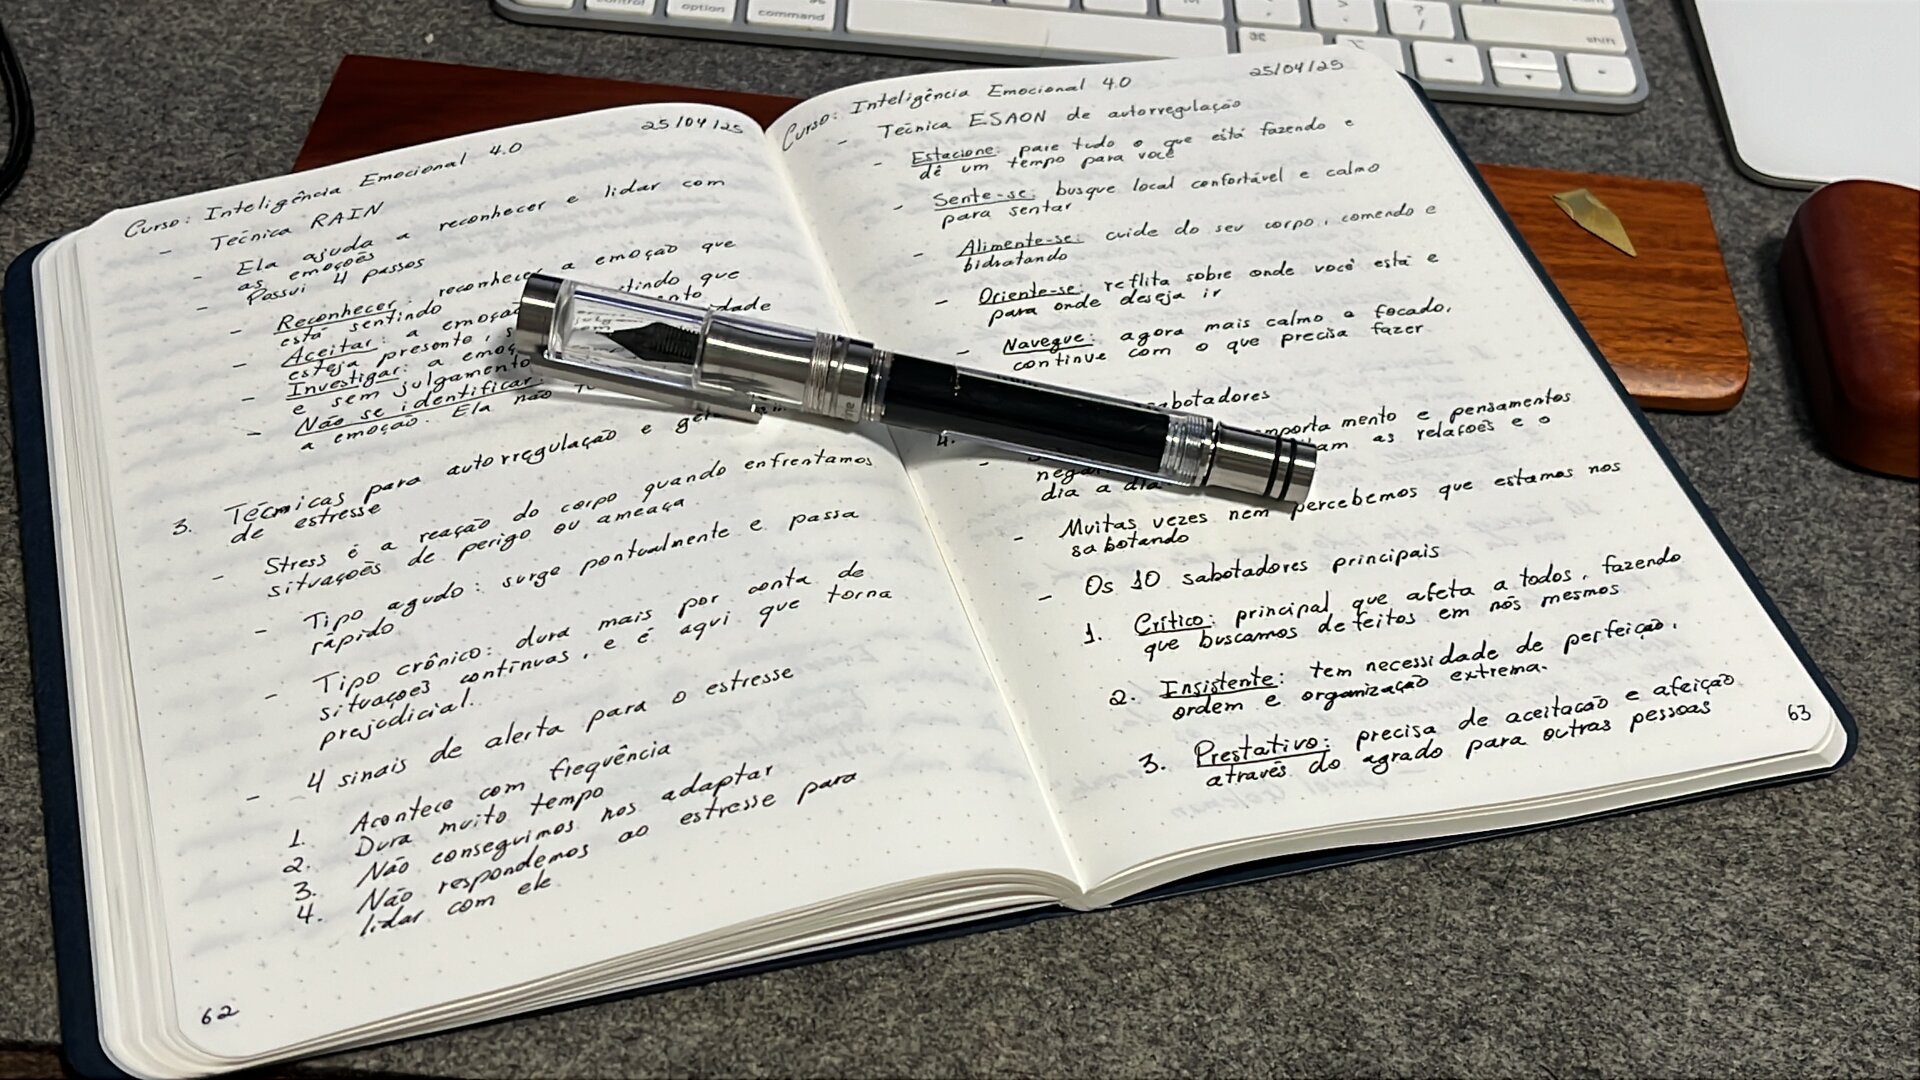 control
option
command
shift
25/04/25
Curso: Inteligência Emocional 4.0
- Técnica RAIN
- Ela ajuda a reconhecer e lidar com
as emoções
- Possui 4 passos
- Reconhecer: reconhecer a emoção que
está sentindo
- Aceitar: a emoção tindo que
esteja presente,
- Investigar: a emoç dade
e sem julgamento
- Não se identificar:
a emoção. Ela não
3. Técnicas para autorregulação e ge
de estresse
- Stress é a reação do corpo quando enfrentamos
situações de perigo ou ameaça
- Tipo agudo: surge pontualmente e passa
rápido
- Tipo crônico: dura mais por conta de
situações contínuas, e é aqui que torna
prejudicial.
- 4 sinais de alerta para o estresse
1. Acontece com frequência
2. Dura muito tempo
3. Não conseguimos nos adaptar
4. Não respondemos ao estresse para
lidar com ele
62
25/04/25
Curso: Inteligência Emocional 4.0
- Técnica ESAON de autorregulação
- Estacione: pare tudo o que está fazendo e
dê um tempo para você
- Sente-se: busque local confortável e calmo
para sentar
- Alimente-se: cuide do seu corpo, comendo e
hidratando
- Oriente-se: reflita sobre onde você está e
para onde deseja ir
- Navegue: agora mais calmo e focado,
continue com o que precisa fazer
4. sabotadores
- mportamento e pensamentos
nega am as relações e o
dia a dia
- Muitas vezes nem percebemos que estamos nos
sabotando
- Os 10 sabotadores principais
1. Crítico: principal que afeta a todos, fazendo
que buscamos defeitos em nós mesmos
2. Insistente: tem necessidade de perfeição,
ordem e organização extrema.
3. Prestativo: precisa de aceitação e afeição
através do agrado para outras pessoas
63